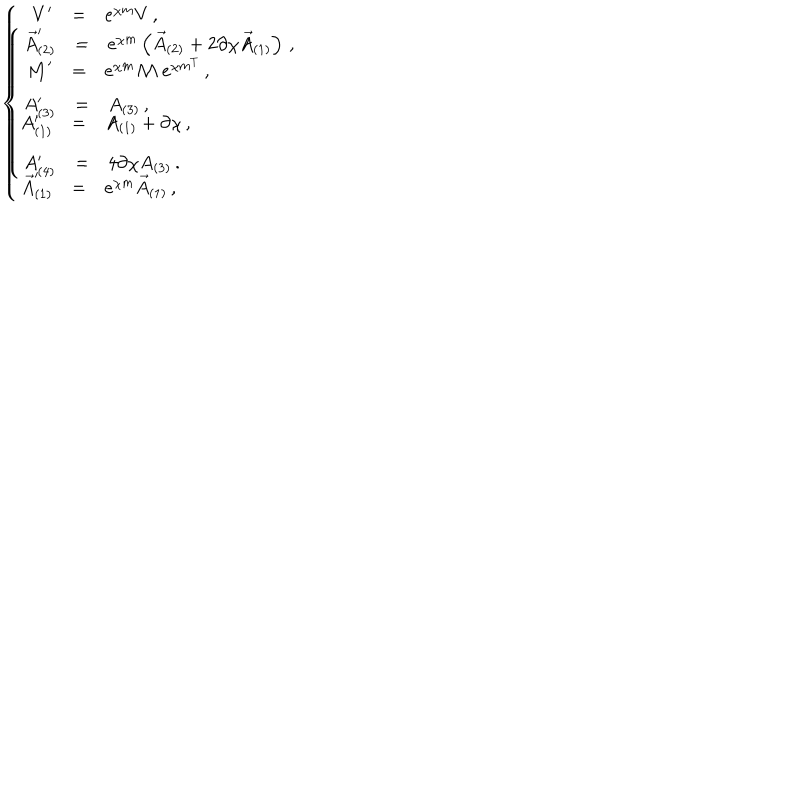 V′ = e^{χm} V ,
\vec{A}′_{(2)} = e^{χm} ( \vec{A}_{(2)} + 2∂χ\vec{A}_{(1)} ) ,
M′ = e^{χm} M e^{χm^T} ,
A′_{(3)} = A_{(3)} ,
A′_{(1)} = A_{(1)} + ∂χ ,
A′_{(4)} = 4∂χA_{(3)} .
\vec{A}′_{(1)} = e^{χm} \vec{A}_{(1)} ,